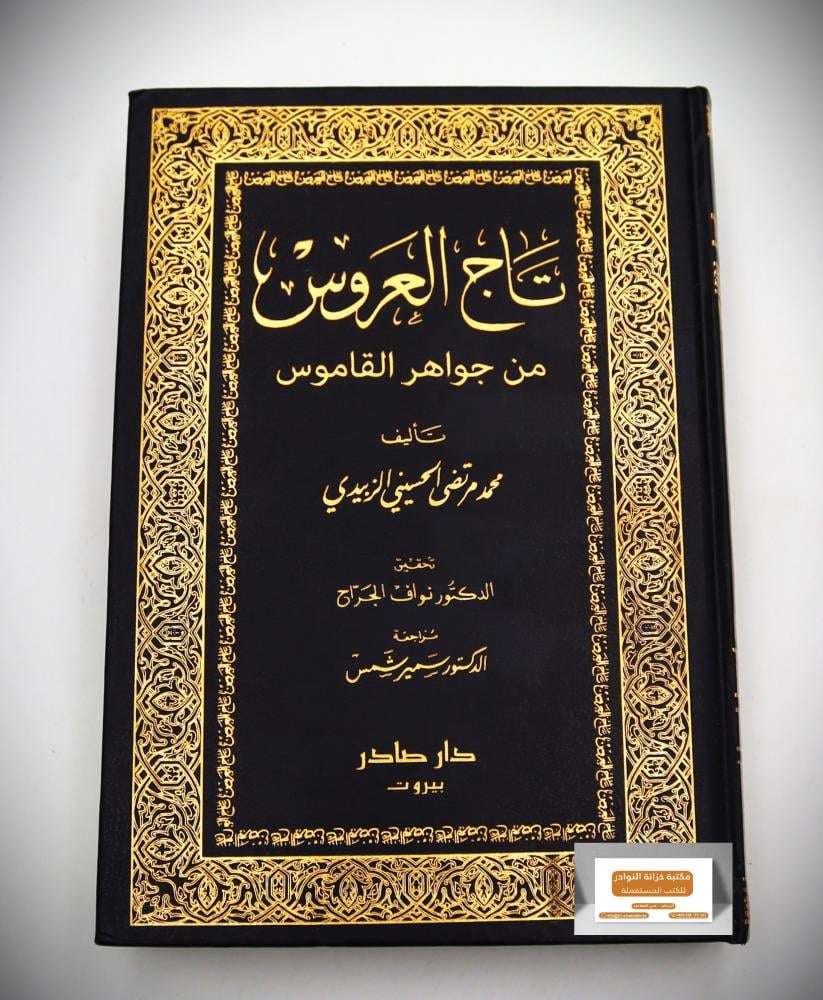 تاج العروس
من جواهر القاموس
تأليف
محمد مرتضى الحسيني الزبيدي
تحقيق
الدكتور نواف الجراح
مراجعة
الدكتور سمير شمس
دار صادر
بيروت
مكتبة خزانة النوادر
للكتب المستعملة